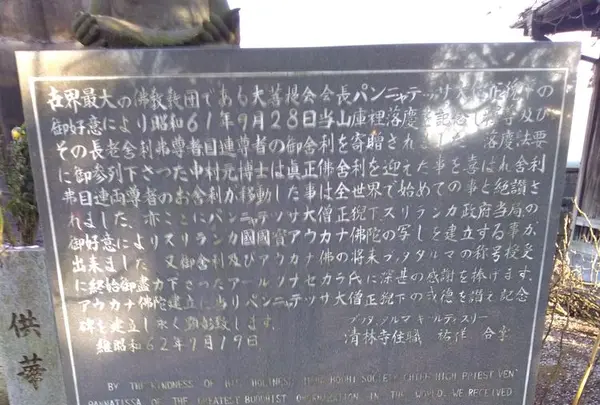 世界最大の佛教教団である大菩提会会長パンニャテッサ大僧正猊下の
御好意により昭和61年9月28日当山庫裡落慶を記念し 及び
その長老舎利弗尊者目連尊者の御舎利を寄贈されました 落慶法要
に御参列下さった中村元博士は真正佛舎利を迎えた事を喜ばれ舎利
弗目連両尊者のお舎利が移動した事は全世界で始めての事と絶讃さ
れました、亦ことにパンニャテッサ大僧正猊下スリランカ政府当局の
御好意によりスリランカ國國宝アウカナ佛陀の写しを建立する事が
出来ました 又御舎利及びアウカナ佛の将来ブッダダルマの称号授受
に終始御盡力下さったアールソナセカラ氏に深甚の感謝を捧げます、
アウカナ佛陀建立に当りパンニャテッサ大僧正猊下の威徳を讃え記念
碑を建立し永く顕彰致します、
ブッダダルマ キールティスリー
維昭和62年9月19日 清林寺住職 祐洋 合掌
BY THE KINDNESS OF HIS HOLINESS MAHA BODHI SOCIETY CHIEF HIGH PRIEST VEN
PANNATISSA OF THE GREATEST BUDDHIST ORGANIZATION IN THE WORLD, WE RECEIVED
供華